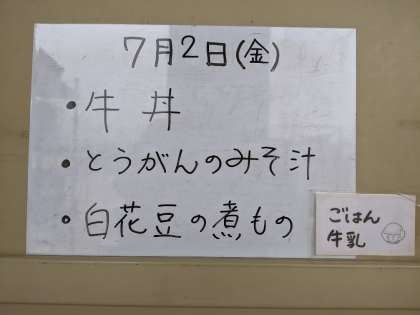 7月2日(金)
・牛丼
・とうがんのみそ汁
・白花豆の煮もの
ごはん
牛乳